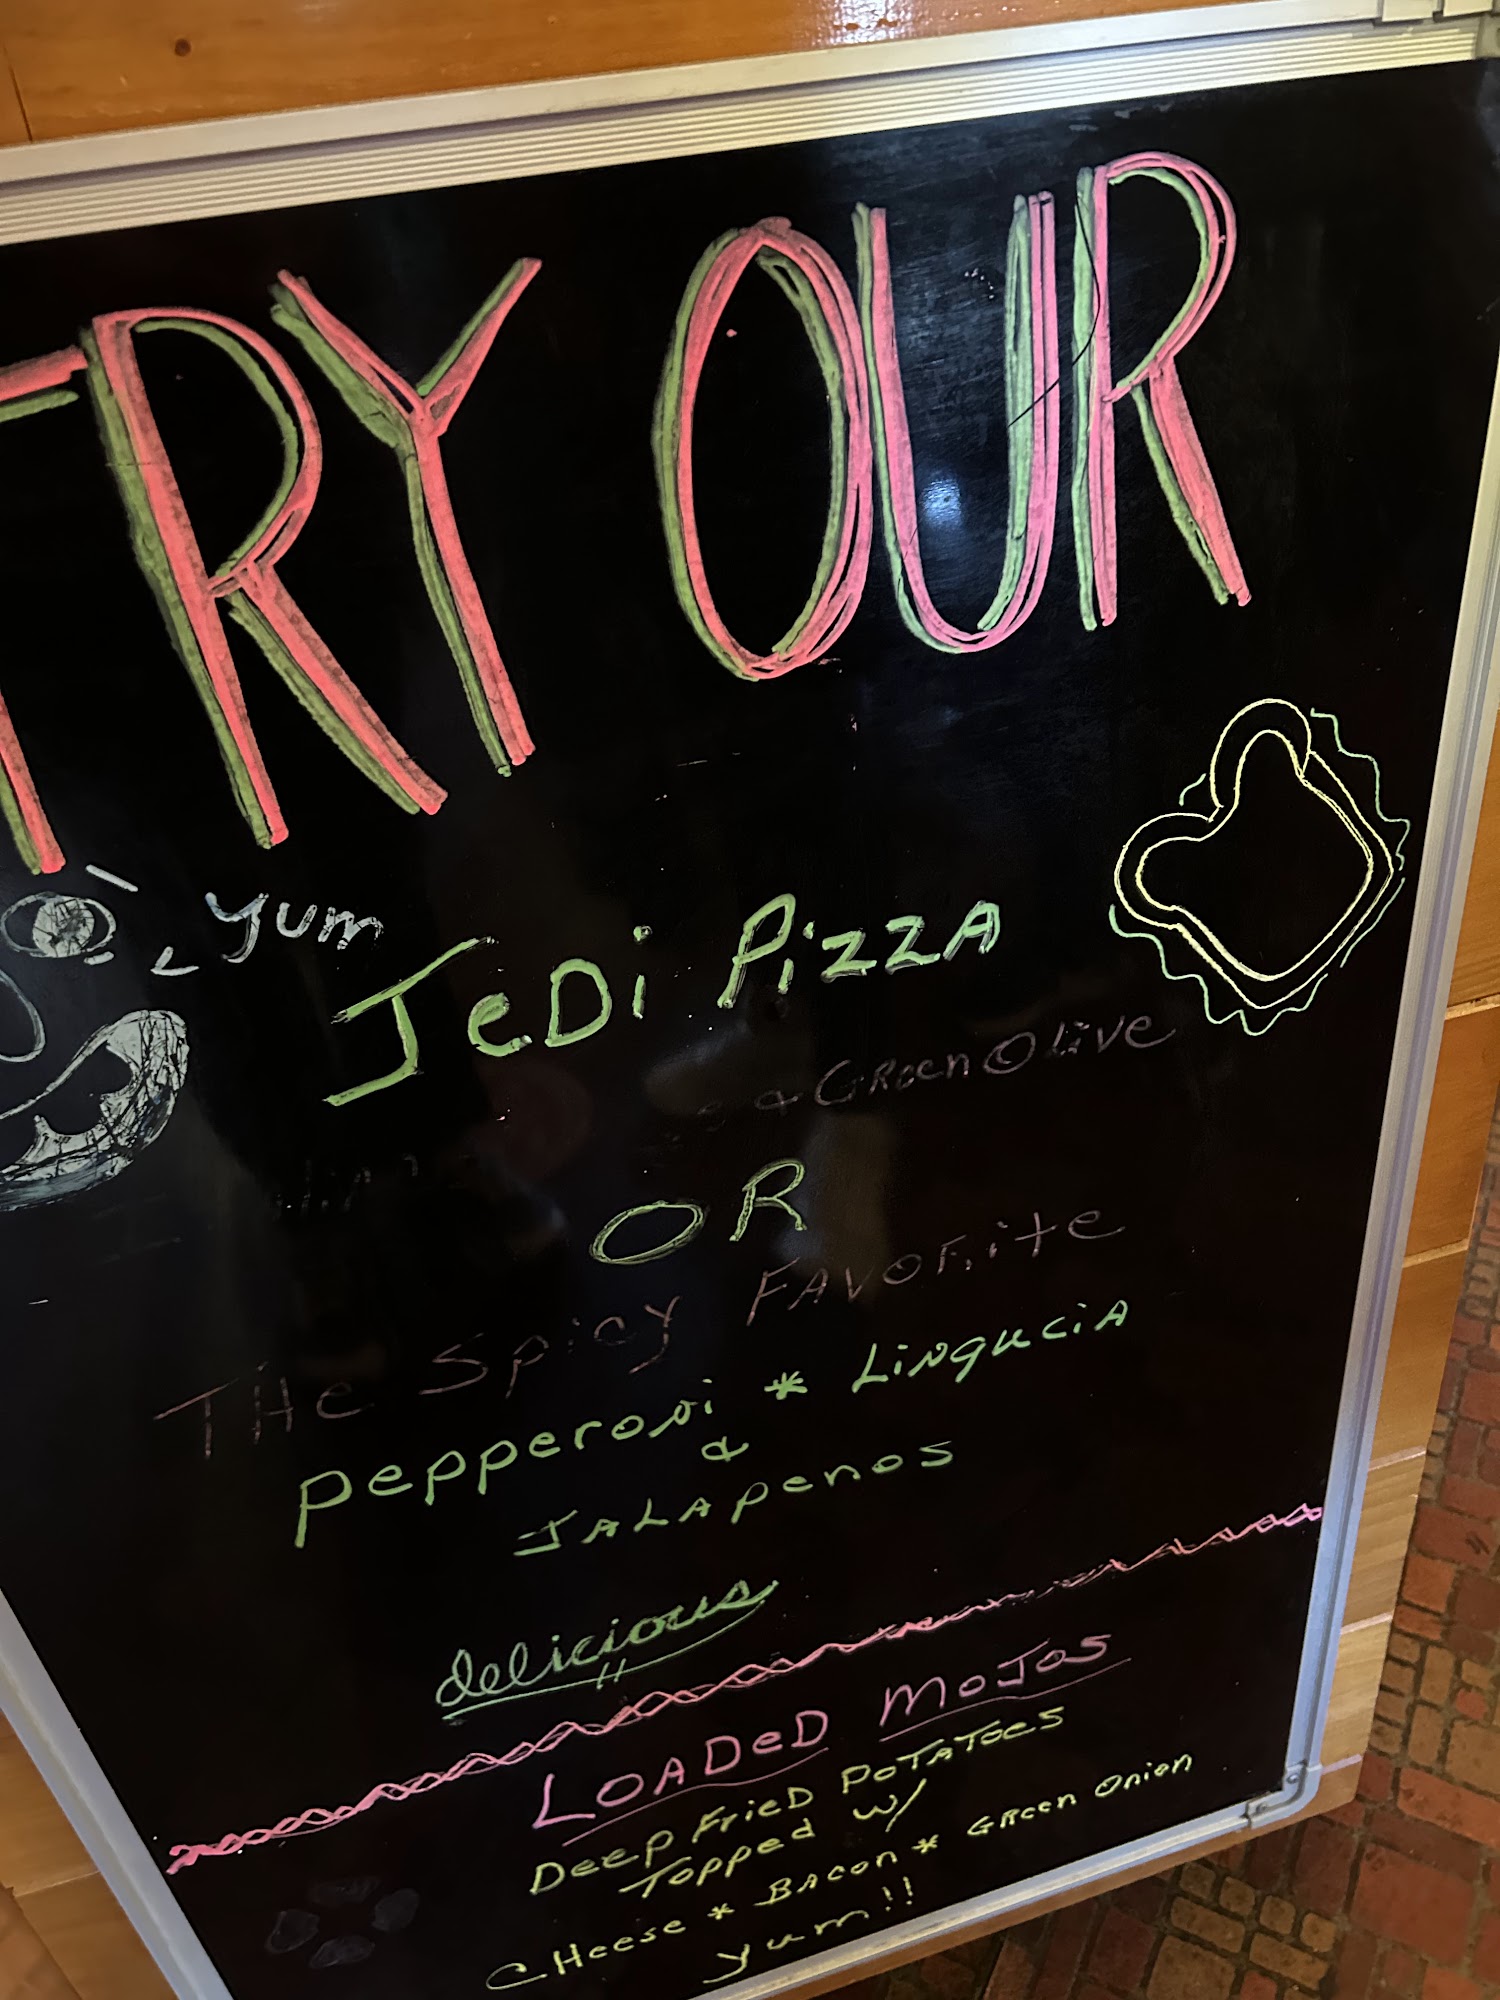 TRY OUR
Yum
JeDi Pizza
& Green Olive
OR
THe Spicy FAVORite
Pepperoni * LinguciA
&
JALApenos
delicious
LOADeD MoJos
Deep FrieD PoTAToes
Topped w/
CHeese * BAcon * GReen Onion
Yum!!